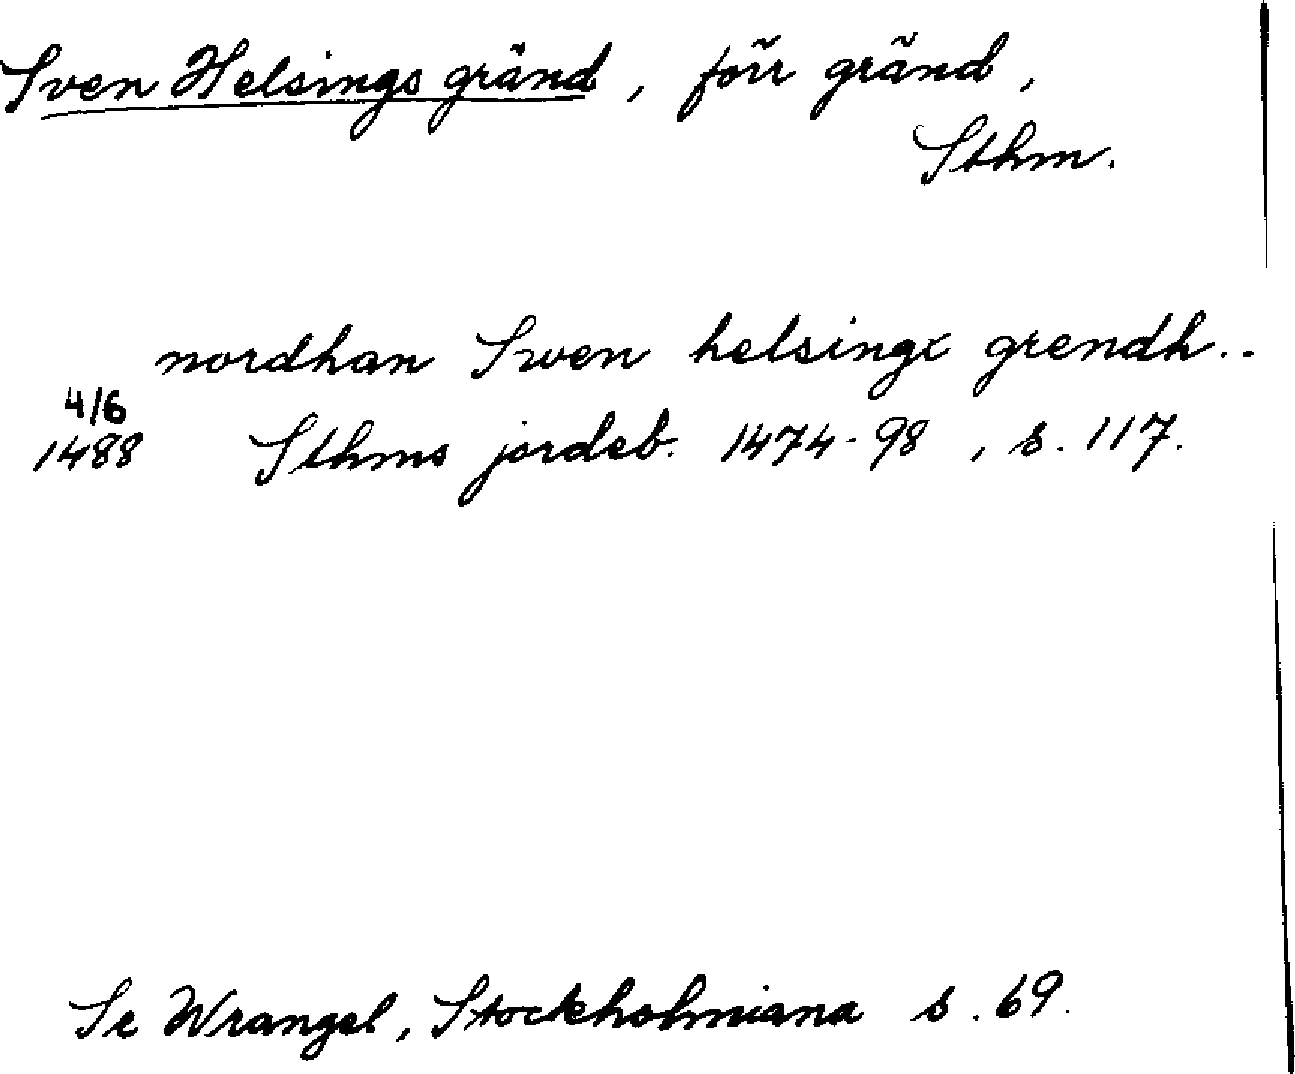 Sven Helsings gränd, förr gränd,
Sthm.
nordhan Swen helsingx grendh..
4/6
1488 Sthms jordeb. 1474-98, s. 117.
Se Wrangel, Stockholmiana s. 69.